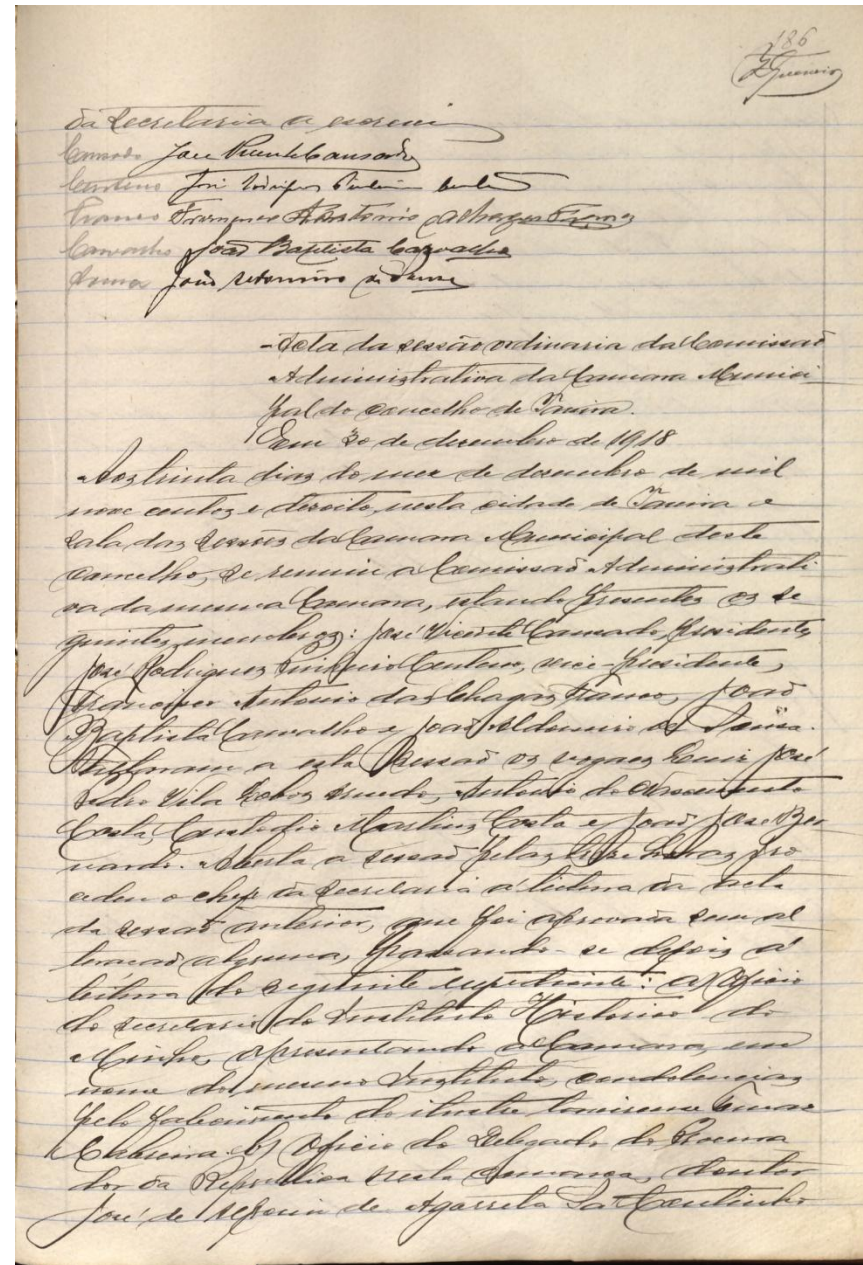 186
da Secretaria a escrevi
Camado José Vicente Cansado
Centeno José Rodrigues Centeno
Franco Francisco Antonio das Chagas Franco
Carvalho João Baptista Carvalho
João
Acta da sessão ordinaria da Comissão
Administrativa da Camara Munici
pal do concelho de Tavira.
Em 30 de dezembro de 1918
Aos trinta dias do mez de dezembro de mil
nove centos e dezoito, nesta cidade de Tavira e
sala das sessões da Camara Municipal deste
concelho, se reuniu a Comissão Administrati
va da mesma Camara, estando presentes os se
guintes membros: José Vicente Cansado, presidente,
José Rodrigues Centeno, vice-presidente,
Francisco Antonio das Chagas Franco, João
Baptista Carvalho e João
a esta sessão os vogaes Luiz José
Vila Lobos Antonio do Nascimento
Costa, Custodio Martins Costa e João José Ber
nardo. Aberta a sessão pelas horas, pro
cedeu o chefe da secretaria á leitura da acta
da sessão anterior, que foi aprovada sem al
teração alguma, passando-se depois á
leitura do seguinte expediente: a) Oficio
do secretario do Instituto Historico do
Minho, apresentando á Camara, em
nome do mesmo Instituto, condolencias
pelo falecimento do ilustre tavirense Tomaz
Cabreira. b) Oficio do Delegado do Procura
dor da Republica nesta comarca, doutor
José de de Sá Coutinho